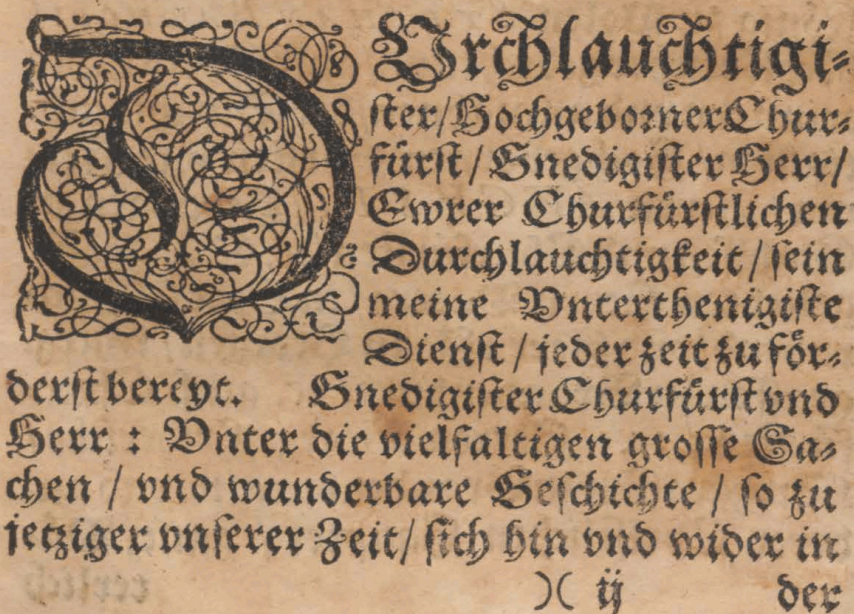 DVrchlauchtigi-
ster/HochgebornerChur-
fürst/Gnedigister Herr/
Ewrer Churfürstlichen
Durchlauchtigkeit/sein
meine Vnterthenigiste
Dienst/jederzeit zu för-
derst bereyt. Gnedigister Churfürst vnd
Herr : Vnter die vielfaltigen grosse Sa-
chen / vnd wunderbare Geschichte / so zu
jetziger vnserer Zeit/ sich hin vnd wider in
)( ij der